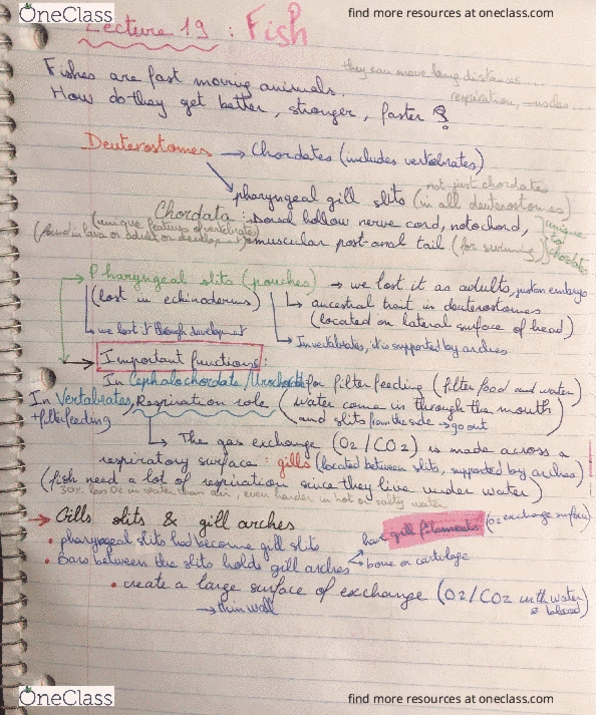 OneClass
find more resources at oneclass.com
Lecture 19 : Fish
Fishes are fast moving animals.
they can move long distances ...
respiration,
How do they get better, stronger, faster ?
Deuterostomes → Chordates (includes vertebrates)
not just chordates
pharyngeal gill slits (in all deuterostomes)
Chordata : Dorsal hollow nerve cord, notochord,
(unique features of vertebrates)
muscular post-anal tail (for swimming)
unique to chordates
Pharyngeal slits (pouches) → we lost it as adults, just on embryo
(lost in echinoderms)
ancestral trait in deuterostomes
(located on lateral surface of head)
we lost it through development
In vertebrates, it is supported by arches
Important functions:
In Cephalochordate / Urochordate for filter feeding (filter food and water)
In Vertabrates, Respiration role (water come in through the mouth
+filterfeeding
and slits from the side → go out)
The gas exchange (O2/CO2) is made across a
respiratory surface : gills (located between slits, supported by arches)
(fish need a lot of respiration since they live under water)
30x less O2 in water than air, even harder in hot or salty water
→ Gills slits & gill arches
have gill filaments (O2 exchange surface)
• pharyngeal slits had become gill slits
• Bars between the slits holds gill arches
bone or cartilage
• create a large surface of exchange (O2/CO2 with water
& blood)
→ thin wall
OneClass
find more resources at oneclass.com